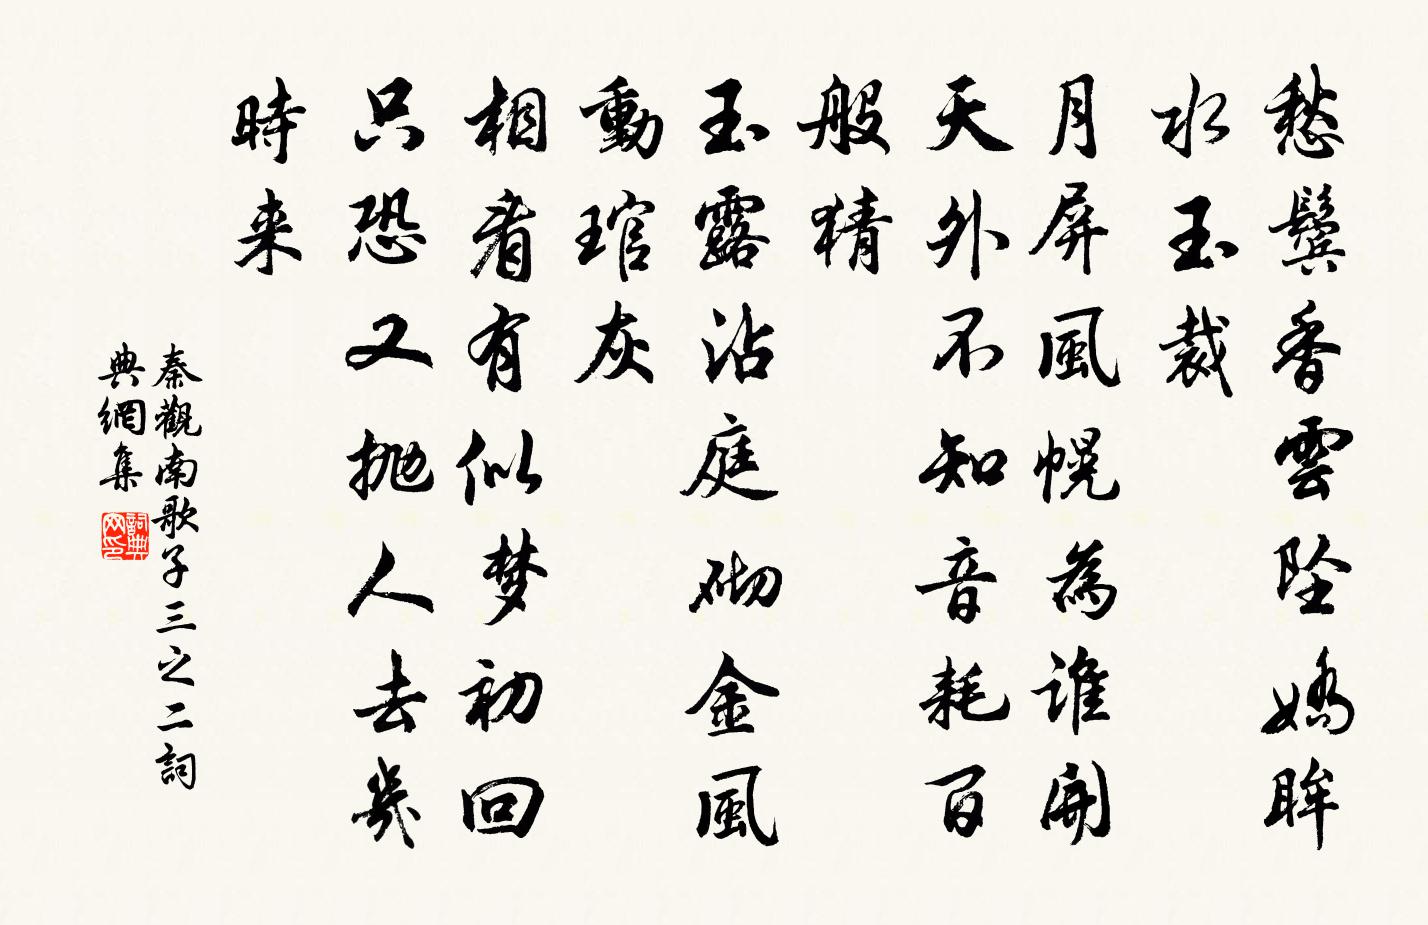 愁鬓香雲坠嬌眸
水玉裁
月屏風幌為誰開
天外不知音耗百
般猜
玉露沾庭砌金風
動琯灰
相看有似梦初回
只恐又抛人去幾
時来
秦觀南歌子三之二詞
典網集
詞典网印